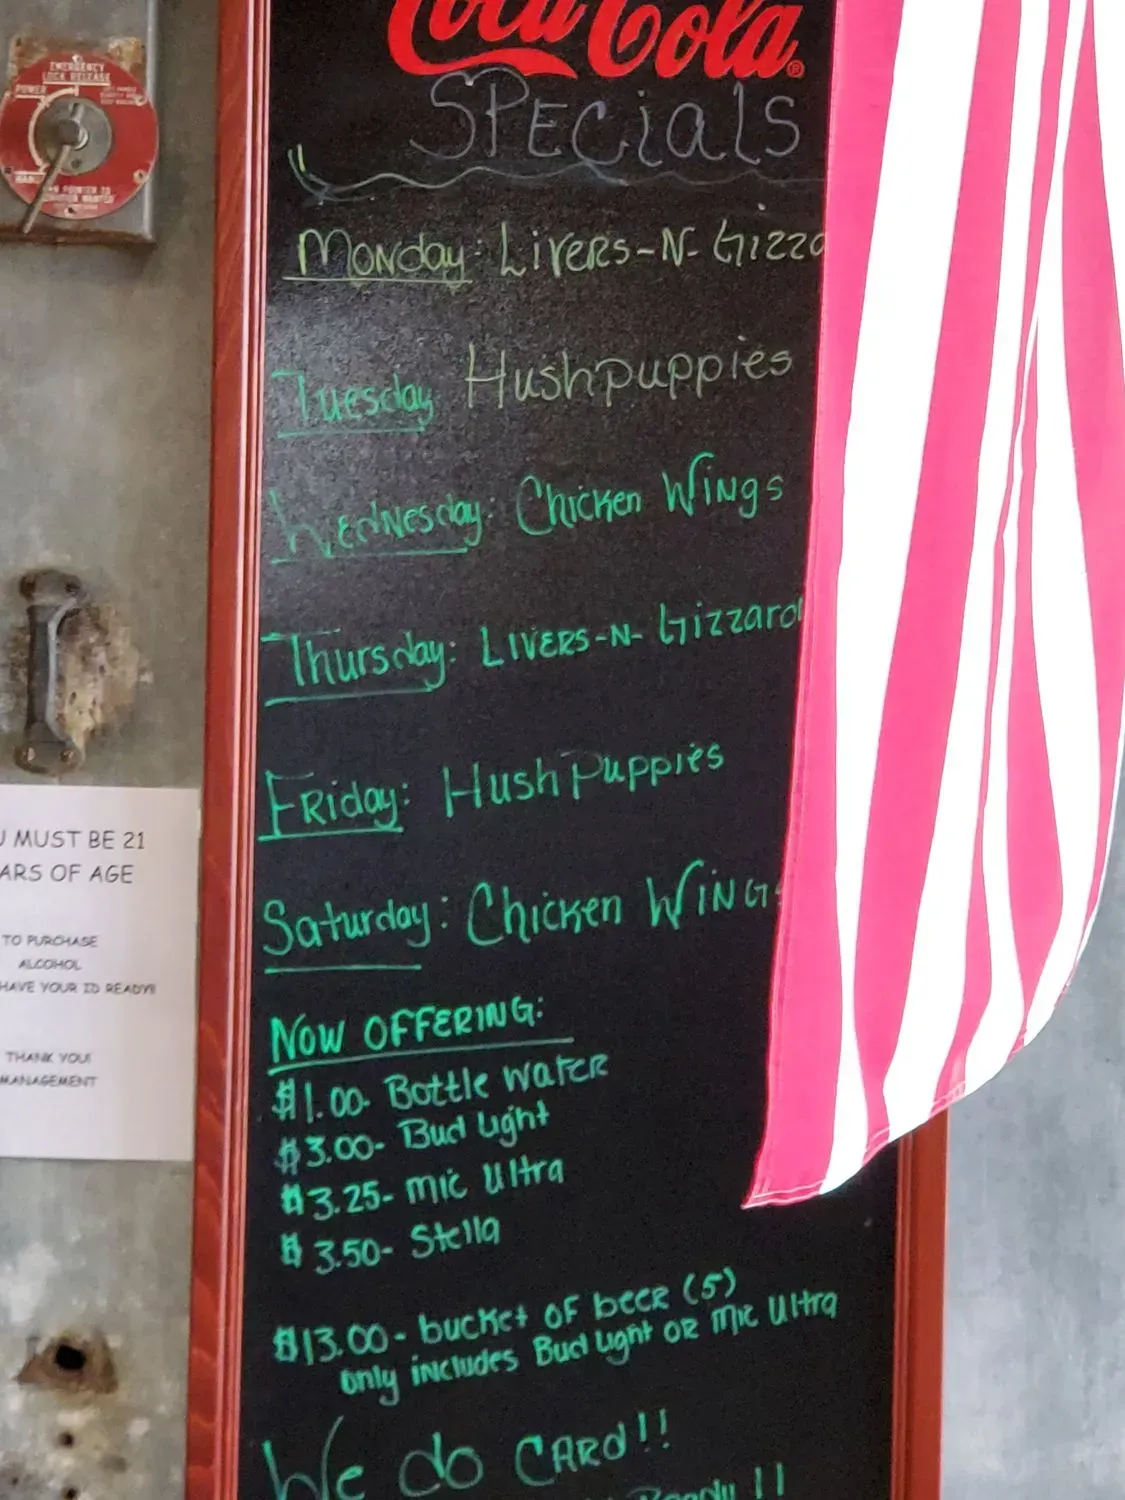 Coca-Cola
SPECials
Monday: Livers-N-Gizza
Tuesday Hushpuppies
Wednesday: Chicken Wings
Thursday: Livers-N-Gizzard
Friday: Hush Puppies
Saturday: Chicken Wings
NOW OFFERING:
$1.00- Bottle Water
$3.00- Bud Light
$3.25- Mic Ultra
$3.50- Stella
$13.00- bucket of beer (5)
only includes Bud Light or Mic Ultra
We do CARD!!
Ready!!
EMERGENCY
LOCK RELEASE
POWER
U MUST BE 21
ARS OF AGE
TO PURCHASE
ALCOHOL
HAVE YOUR ID READY!!
THANK YOU!
MANAGEMENT